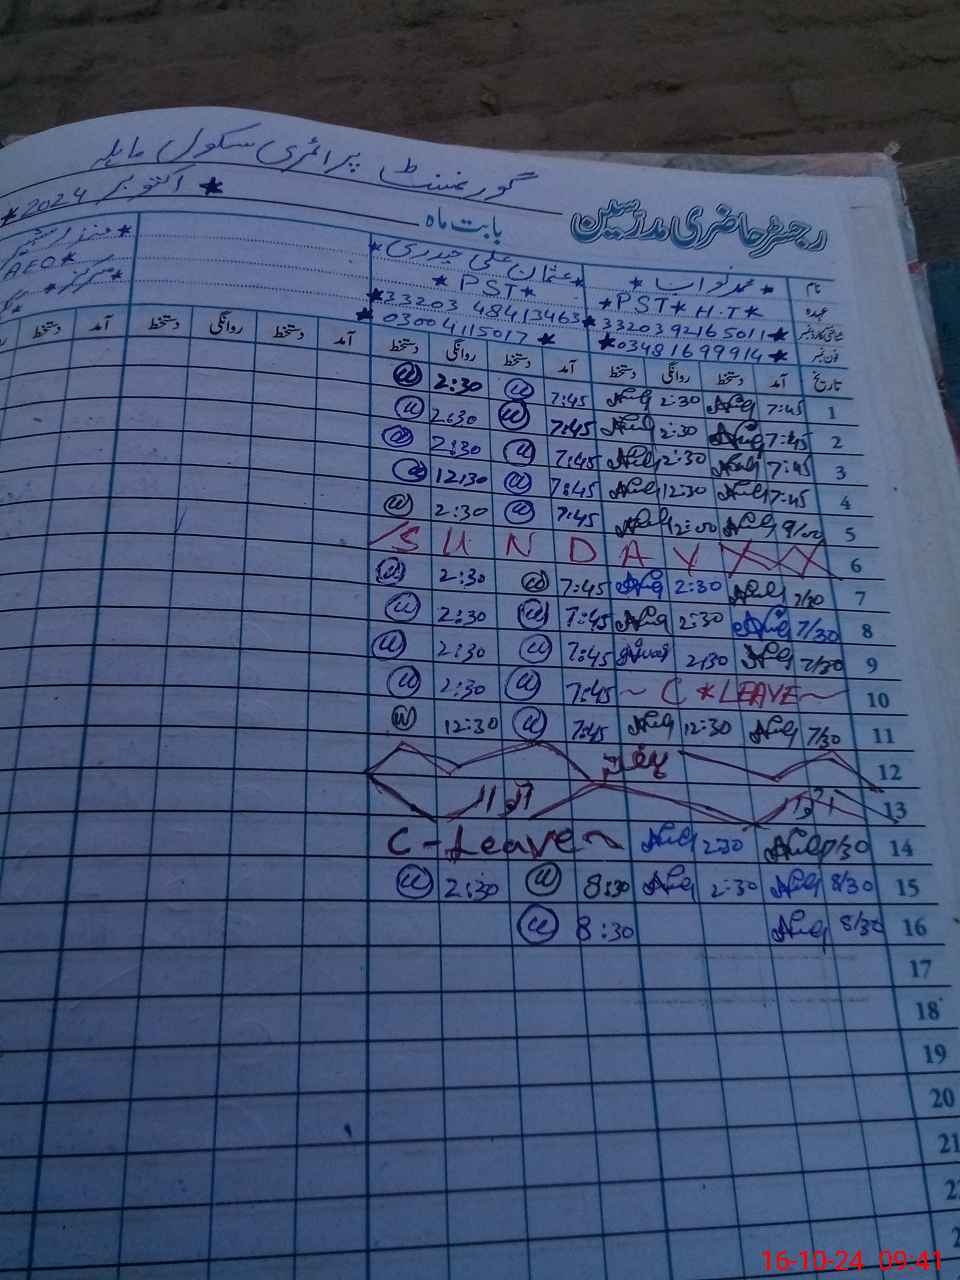 گورنمنٹ پرائمری سکول
رجسٹر حاضری مدرسین بابت ماہ * اکتوبر 2024 *
نام * محمد نواب * * عثمان علی حیدری *
عہدہ * PST * H.T * * PST *
* 3320392165011 * * 33203 48413463 *
فون نمبر * 03481699914 * * 03004115017 *
AEO *
تاریخ آمد دستخط روانگی دستخط آمد دستخط روانگی دستخط آمد دستخط روانگی دستخط آمد دستخط
1 7:45 2:30 7:45 2:30
2 7:45 2:30 7:45 2:30
3 7:45 2:30 7:45 2:30
4 7:45 12:30 7:45 12:30
5 9/00 12:00 7:45 2:30
6 SUNDAY
7 7/30 2:30 7:45 2:30
8 7/30 2:30 7:45 2:30
9 7/30 2:30 7:45 2:30
10 ~ C * LEAVE ~ 7:45 2:30
11 7/30 12:30 7:45 12:30
12 ہفتہ
13 اتوار
14 7/30 2:30 C - Leave ~
15 8/30 2:30 8:30 2:30
16 8/30 8:30
17
18
19
20
21
16-10-24 09:41